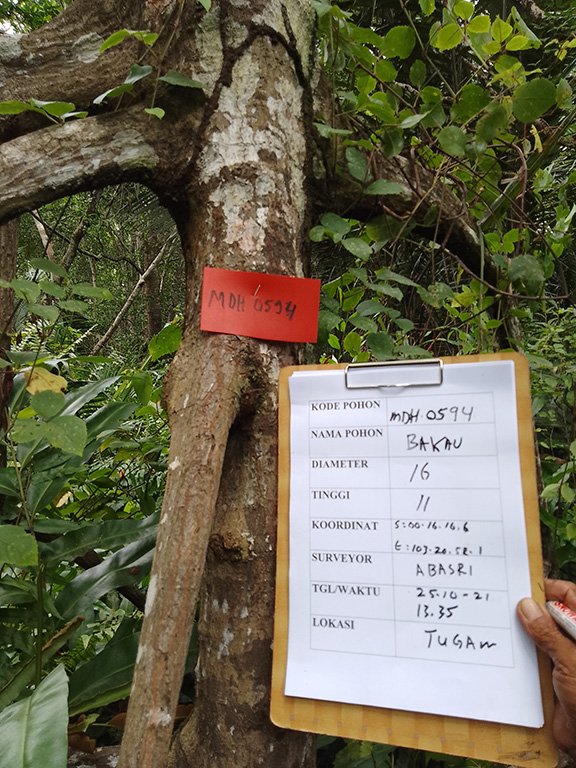 MDH 0594
KODE POHON MDH.0594
NAMA POHON BAKAU
DIAMETER 16
TINGGI 11
KOORDINAT S:00.16.16.6
E:103.20.58.1
SURVEYOR ABASRI
TGL/WAKTU 25.10-21
13.35
LOKASI TUGAM